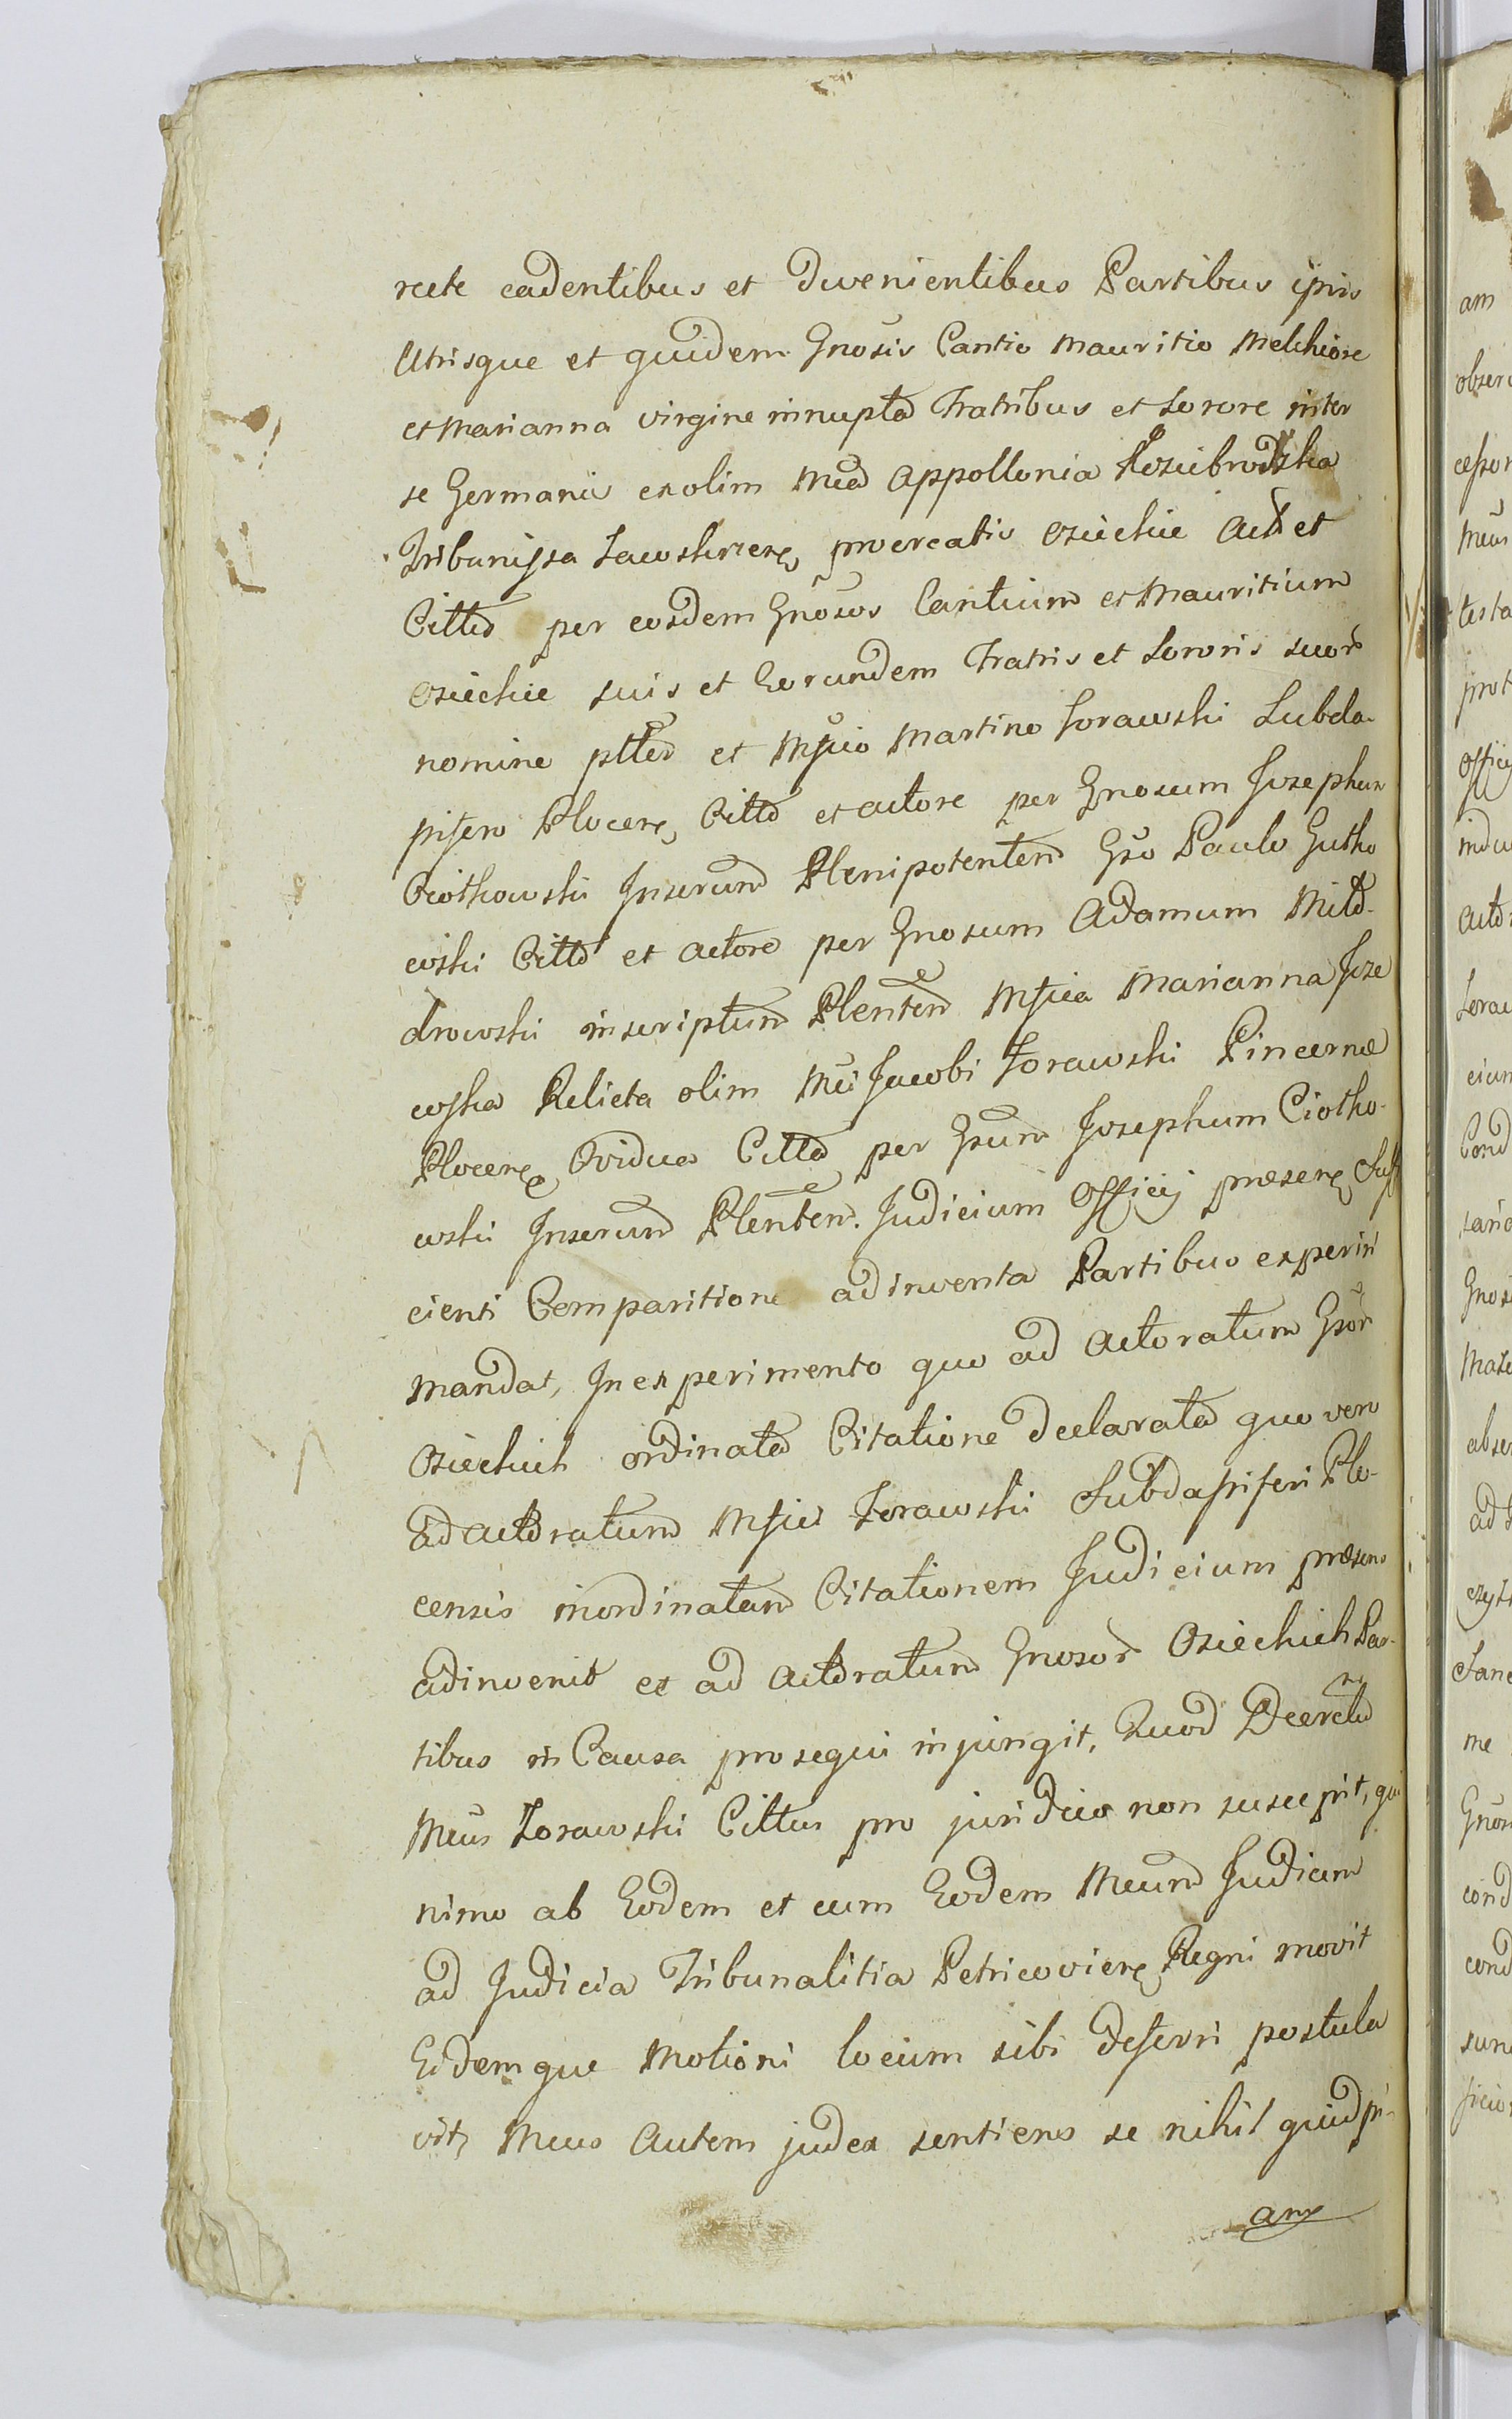 recte cadentibus et devenientibus Partibus ipsis
Utrisque et quidem Gnosis Cantio Mauritio Melchiore
et Marianna virgine innupta Fratribus et Sorore inter
se Germanis ex olim Mca Appollonia
Tribunissa procreatis Osiechie Act et
Citta per eosdem Gnosos Cantium et Mauritium
Osiechie suis et Eorundem Fratris et Sororis suor
nomine et Mfico Martino Zorawski Subda-
pifero Plocen, Citto et Actore per Gnosum Josephum
Ciotkowski Inserum Plenipotentem Gso Paulo Gutko
wski Citto et Actore per Gnosum Adamum
drowski inscriptum Plentem Mfica Marianna Jize
wska Relicta olim Mci Jacobi Zorawski Pincernæ
Plocen, Vidua Citta per Gsum Josephum Ciotko-
wski Inserum Plentem. Judicium Officij præsens, Suff
cienti Comparitione adinventa Partibus experiri
mandat, In experimento quo ad Actoratum Gsor
Osiechich ordinata Citatione declarata quo vero
ad actoratum Mfici Zorawski Subdapiferi Plo-
censis inordinatam Citationem Judicium præsens
adinvenit et ad Actoratum Gnosor Osiechich Par-
tibus in Causa prosequi injungit, Quod Decretum
Mcus Zorawski Cittus pro juridico non suscepit, qui
nimo ab Eodem et cum Eodem Mcum Judicem
ad Judicia Tribunalitia Petricovien, Regni movit
Eidemque Motioni locum sibi deferri postula
vit, Mcus Autem judex sentiens se nihil quidpi-
am